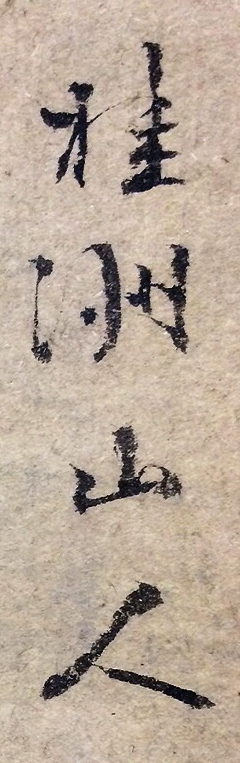 桂洲山人